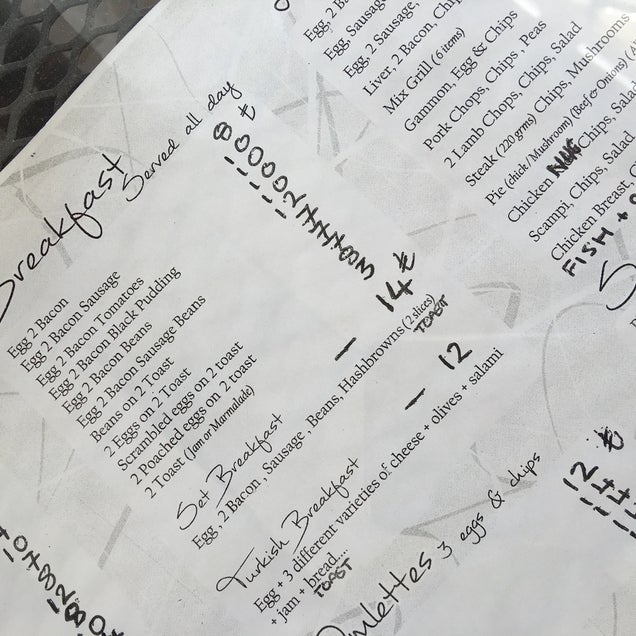 Breakfast
Served all day
₺
Egg 2 Bacon 8
Egg 2 Bacon Sausage 10
Egg 2 Bacon Tomatoes 10
Egg 2 Bacon Black Pudding 10
Egg 2 Bacon Beans 10
Egg 2 Bacon Sausage Beans 12
Beans on 2 Toast
2 Eggs on 2 Toast
Scrambled eggs on 2 toast
2 Poached eggs on 2 toast
2 Toast (Jam or Marmalade) 3
Set Breakfast — 14 ₺
Egg , 2 Bacon , Sausage , Beans, Hashbrowns (2 slices) TOAST
Turkish Breakfast — 12
Egg + 3 different varieties of cheese + olives + salami
+ jam + bread.... TOAST
Omlettes 3 eggs & chips
12 ₺
Egg, 2
Egg, Sausage
Egg, 2 Sausage,
Liver, 2 Bacon, Chip
Mix Grill (6 items)
Gammon, Egg & Chips
Pork Chops, Chips , Peas
2 Lamb Chops, Chips, Salad
Steak (220 grms) Chips, Mushrooms
Pie (chick / Mushroom) (Beef & Onions)
Chicken Chips, Salad
Scampi, Chips, Salad
Chicken Breast,
FISH +